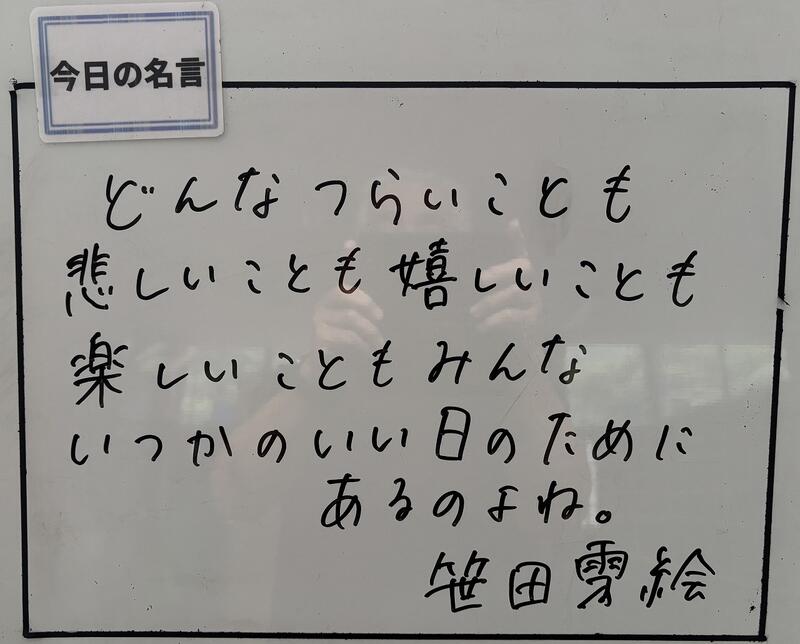 今日の名言
どんなつらいことも
悲しいことも嬉しいことも
楽しいこともみんな
いつかのいい日のために
あるのよね。
笹田雫絵